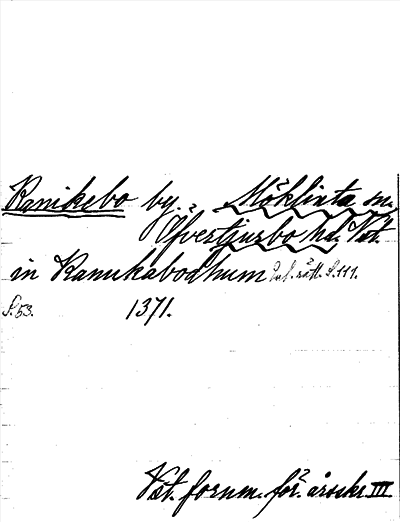 Ranikebo by. Möklinta sn.
Öfvertjurbo hd. Vst.
in Ranukabodhum Inf. rätt. S. 111.
S. 53. 1371.
Vst. fornm. för. årsskr III